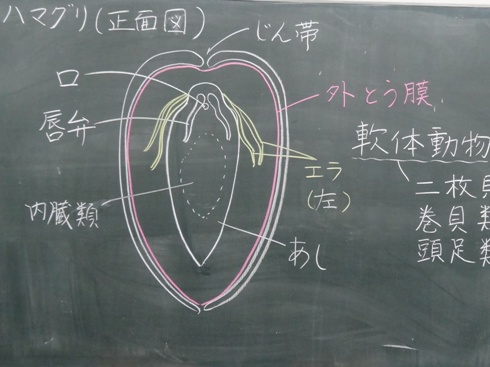 ハマグリ(正面図)
じん帯
口
外とう膜
唇弁
軟体動物
エラ
(左)
二枚貝
内臓類
巻貝類
あし
頭足類